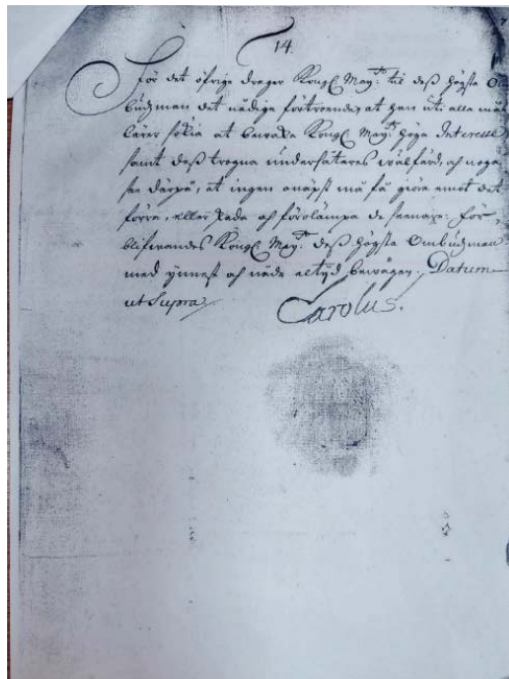 14.
För det öfrige drager Kongl May:tt til deß högste Om
budzman det nådige förtroende, at han uti alla må
lärer sökia at bewaka Kongl May:tt höga Interesse
samt deß trogna undersåteres wälfärd, och noga
see därpå, at ingen onäpst må få giöra emot det
förra, eller skada och förolämpa de senare. För
blifwandes Kongl May:tt deß högste Ombudzman
med ynnest och nåde altyd bewågen. Datum
ut Supra
Carolus.